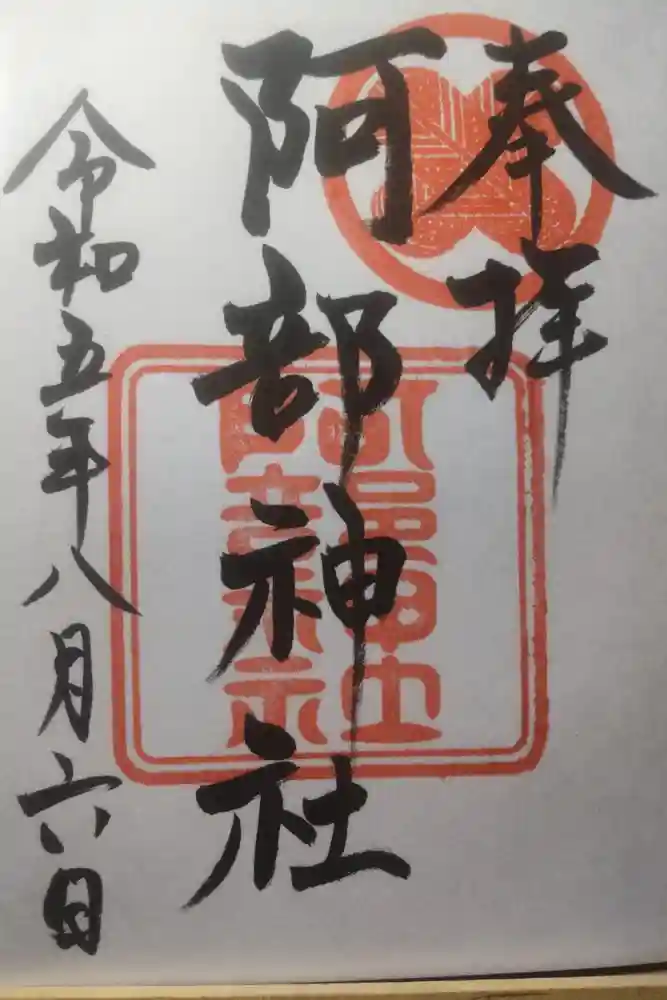 奉拝
阿部神社
令和五年八月六日
阿部神社